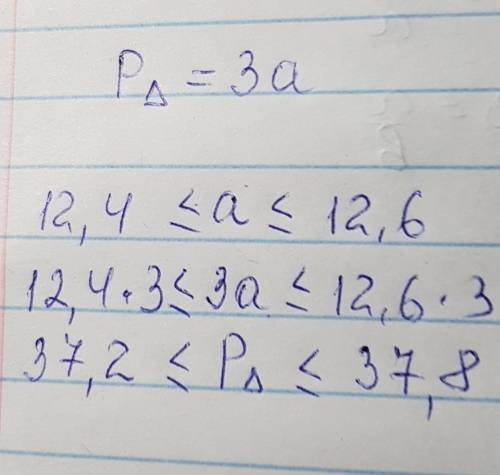 P△ = 3a
12,4 ≤ a ≤ 12,6
12,4·3 ≤ 3a ≤ 12,6·3
37,2 ≤ P△ ≤ 37,8